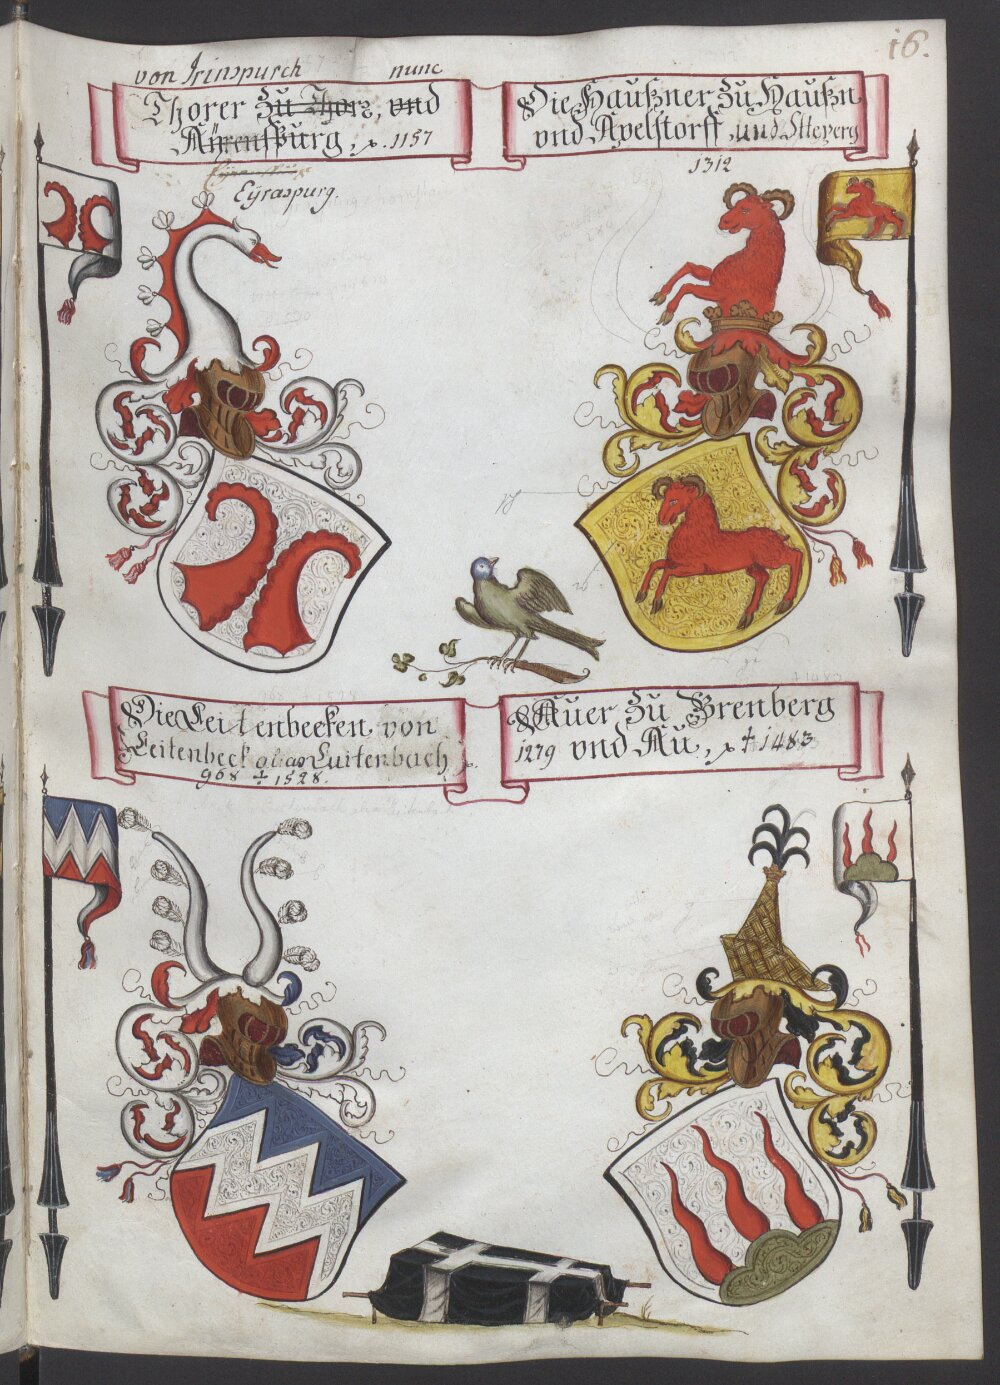 16.
von Irinspurch nunc
Thorer Zu Thorz, vnd
Aürensburg, x. 1157
Eyraspurg.
Die Haußner Zu Haußn
vnd Apelstorff, und
1312
Die Leitenbecken von
Leitenbeck alias Luitenbach x.
968 ‡ 1528.
Auer Zu Brenberg
1279 vnd Au, x ‡ 1483